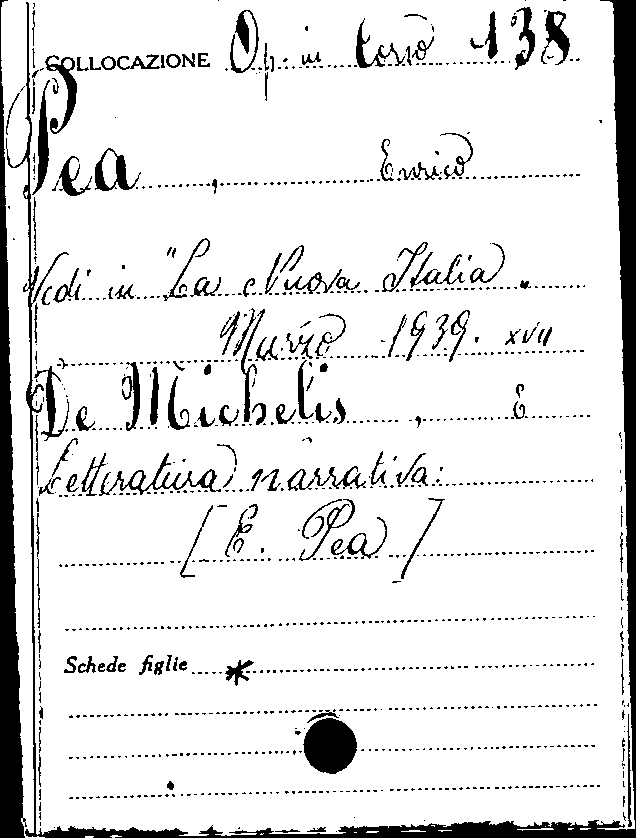 COLLOCAZIONE Op. in corso 138
Pea, Enrico
Vedi in "La Nuova Italia"
Marzo 1939. XVII
De Michelis, E
Letteratura narrativa:
[E. Pea]
Schede figlie *